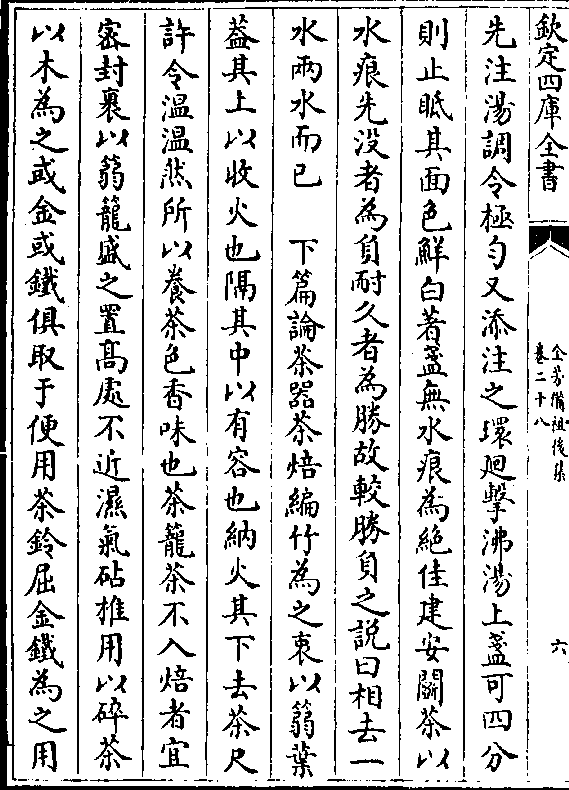 欽定四庫全書
全芳備祖後集
卷二十八
六
先注湯調令極勻又添注之環廻擊沸湯上盞可四分
則止眂其面色鮮白著盞無水痕為絶佳建安鬭茶以
水痕先没者為負耐久者為勝故較勝負之説曰相去一
水兩水而已　下篇論茶器茶焙編竹為之裹以蒻葉
葢其上以收火也隔其中以有容也納火其下去茶尺
許令温温然所以養茶色香味也茶籠茶不入焙者宜
密封裹以蒻籠盛之置髙處不近濕氣砧椎用以碎茶
以木為之或金或鐵俱取于便用茶鈴屈金鐵為之用